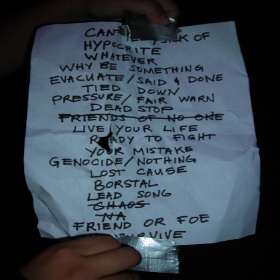 CAN SICK OF
HYPOCRITE
WHATEVER
WHY BE SOMETHING
EVACUATE/SAID & DONE
TIED DOWN
PRESSURE/FAIR WARN
DEAD STOP
FRIENDS OF NO ONE
LIVE YOUR LIFE
READY TO FIGHT
YOUR MISTAKE
GENOCIDE/NOTHING
LOST CAUSE
BORSTAL
LEAD SONG
CHAOS
NA
FRIEND OR FOE